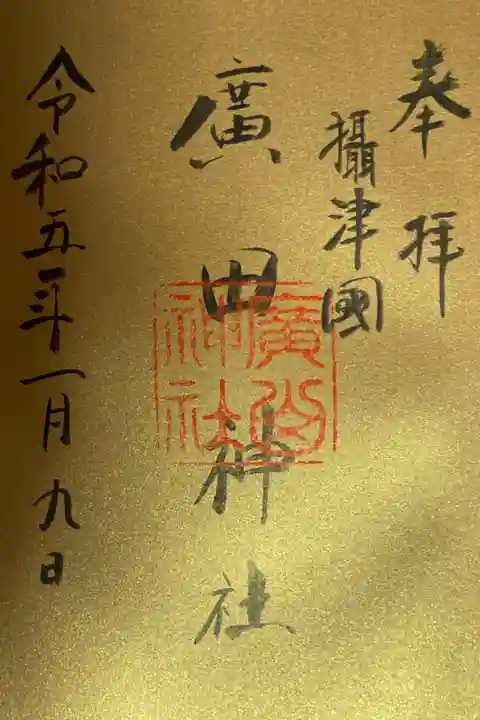 奉拝
攝津國
廣田神社
令和五年一月九日